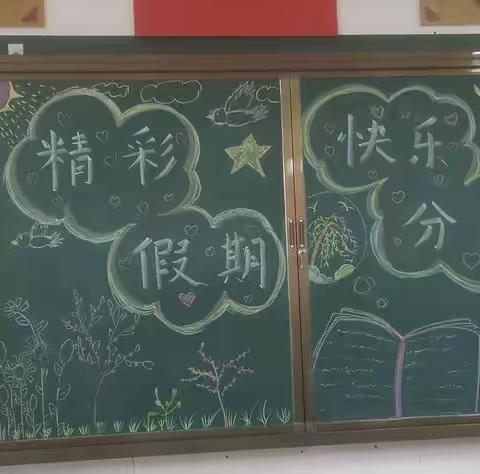 精彩
假期
快乐
分